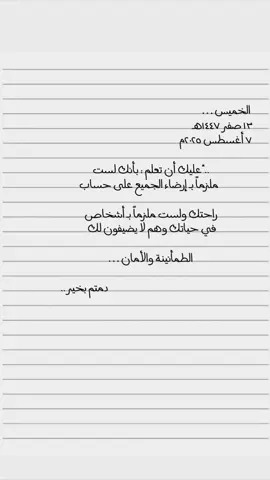 الخميس...
١٣ صفر ١٤٤٧هـ
٧ أغسطس ٢٠٢٥م
.."عليك أن تعلم ، بأنك لست
ملزماً بـ إرضاء الجميع على حساب
راحتك ولست ملزماً بـ أشخاص
في حياتك وهم لا يضيفون لك
الطمأنينة والأمان ...
دمتم بخير ..